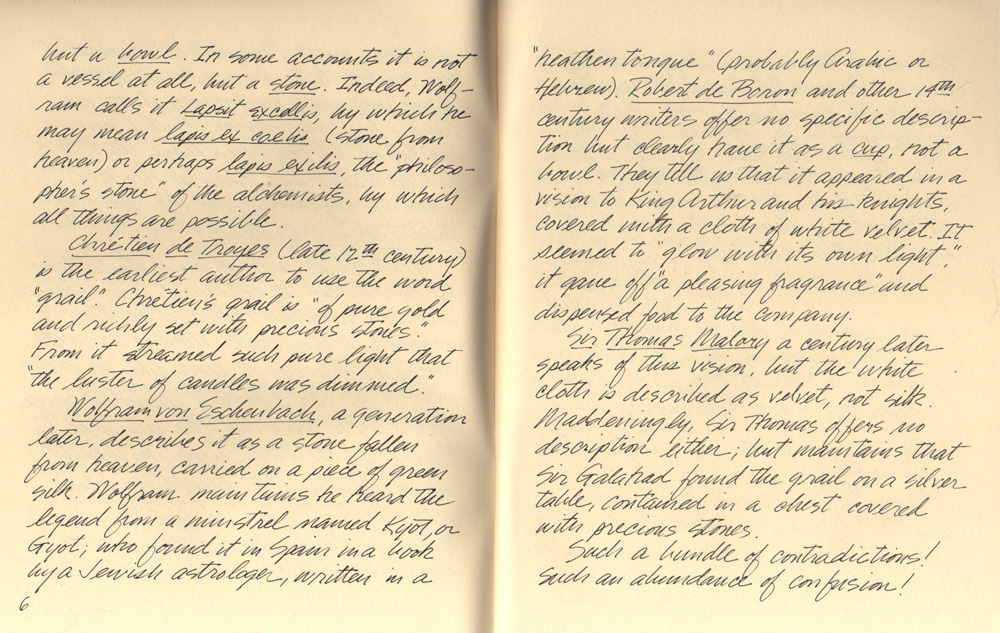 but a bowl. In some accounts it is not
a vessel at all, but a stone. Indeed, Wolf-
ram calls it Lapsit excellis, by which he
may mean lapis ex coelis (stone from
heaven) or perhaps lapis exilis, the "philoso-
pher's stone" of the alchemists, by which
all things are possible.
Chrétien de Troyes (late 12th century)
is the earliest author to use the word
"grail." Chretien's grail is "of pure gold
and richly set with precious stones."
From it streamed such pure light that
"the luster of candles was dimmed."
Wolfram von Eschenbach, a generation
later, describes it as a stone fallen
from heaven, carried on a piece of green
silk. Wolfram maintains he heard the
legend from a minstrel named Kyot, or
Gyot; who found it in Spain in a book
by a Jewish astrologer, written in a
6
"heathen tongue" (probably Arabic or
Hebrew). Robert de Boron and other 14th
century writers offer no specific descrip-
tion but clearly have it as a cup, not a
bowl. They tell us that it appeared in a
vision to King Arthur and his knights,
covered with a cloth of white velvet. It
seemed to "glow with its own light,"
it gave off "a pleasing fragrance" and
dispensed food to the company.
Sir Thomas Malory a century later
speaks of this vision, but the white
cloth is described as velvet, not silk.
Maddeningly, Sir Thomas offers no
description either; but maintains that
Sir Galahad found the grail on a silver
table, contained in a chest covered
with precious stones.
Such a bundle of contradictions!
Such an abundance of confusion!